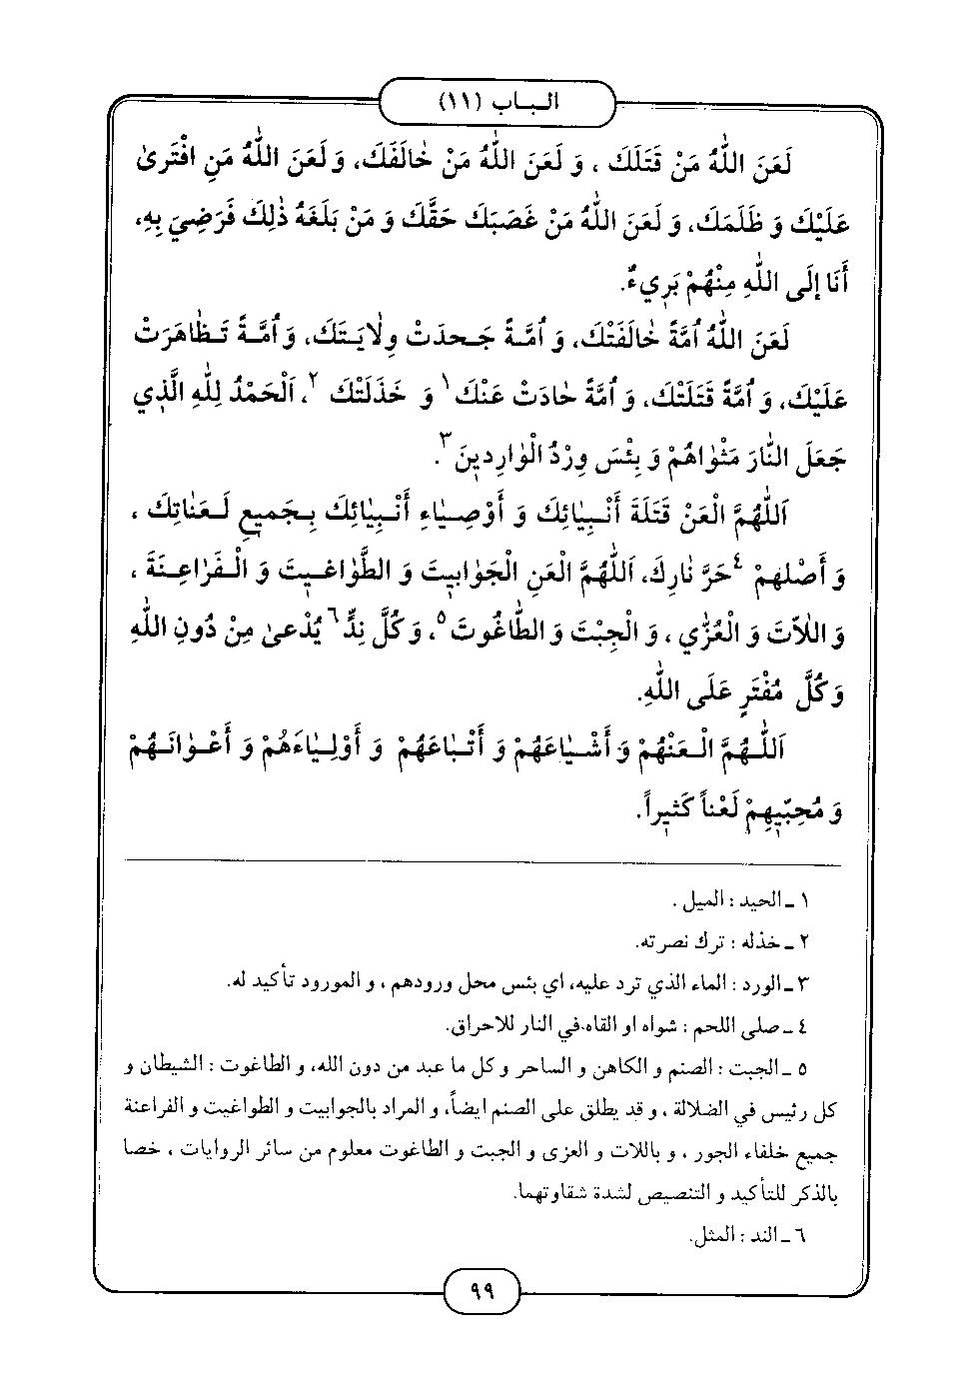 الـبـاب (١١)
لَعَنَ اللّٰهُ مَنْ قَتَلَكَ ، وَ لَعَنَ اللّٰهُ مَنْ خٰالَفَكَ، وَ لَعَنَ اللّٰهُ مَنِ افْتَرىٰ
عَلَيْكَ وَ ظَلَمَكَ، وَ لَعَنَ اللّٰهُ مَنْ غَصَبَكَ حَقَّكَ وَ مَنْ بَلَغَهُ ذٰلِكَ فَرَضِيَ بِهِ،
أَنَا إلَى اللّٰهِ مِنْهُمْ بَرِيءٌ.
لَعَنَ اللّٰهُ اُمَّةً خٰالَفَتْكَ، وَ اُمَّـةً جَـحدَتْ وِلٰايَـتَكَ، وَ اُمَّـةً تَـظٰاهَرَتْ
عَلَيْكَ، وَ اُمَّةً قَتَلَتْكَ، وَ اُمَّةً حٰادَتْ عَنْكَ ١ وَ خَذَلَتْكَ ٢، اَلْحَمْدُ لِلّٰهِ الَّذِي
جَعَلَ النّٰارَ مَثْوٰاهُمْ وَ بِئْسَ وِرْدُ الْوٰارِدِينَ ٣.
اَللّٰهُمَّ الْعَنْ قَتَلَةَ أَنْـبِيٰائِكَ وَ أَوْصِـيٰاءِ أَنْـبِيٰائِكَ بِـجَمِيعِ لَـعَنٰاتِكَ ،
وَ أَصْلِهِمْ ٤ حَرَّ نٰارِكَ، اَللّٰهُمَّ الْعَنِ الْجَوٰابِيتَ وَ الطَّوٰاغـيتَ وَ الْـفَرٰاعِـنَةَ ،
وَ اللّاتَ وَ الْعُزّٰي ، وَ الْجِبْتَ وَ الطّٰاغُوتَ ٥، وَ كُلَّ نِدٍّ ٦ يُدْعىٰ مِنْ دُونِ اللّٰهِ
وَ كُلَّ مُفْتَرٍ عَلَى اللّٰهِ.
اَللّٰـهُمَّ الْـعَنْهُمْ وَ أَشْـيٰاعَهُمْ وَ أَتْـبٰاعَهُمْ وَ أَوْلِـيٰاءَهُمْ وَ أَعْـوٰانَـهُمْ
وَ مُحِبِّيهِمْ لَعْناً كَثيراً.
١ ـ الحيد : الميل .
٢ ـ خذله : ترك نصرته.
٣ ـ الورد : الماء الذي ترد عليه، اي بئس محل ورودهم ، و المورود تأكيد له.
٤ ـ صلى اللحم : شواه او القاه في النار للاحراق.
٥ ـ الجبت : الصنم و الكاهن و الساحر و كل ما عبد من دون الله، و الطاغوت : الشيطان و
كل رئيس في الضلالة ، و قد يطلق على الصنم ايضاً، و المراد بالجوابيت و الطواغيت و الفراعنة
جميع خلفاء الجور ، و باللات و العزى و الجبت و الطاغوت معلوم من سائر الروايات ، خصا
بالذكر للتأكيد و التنصيص لشدة شقاوتهما.
٦ ـ الند : المثل.
٩٩